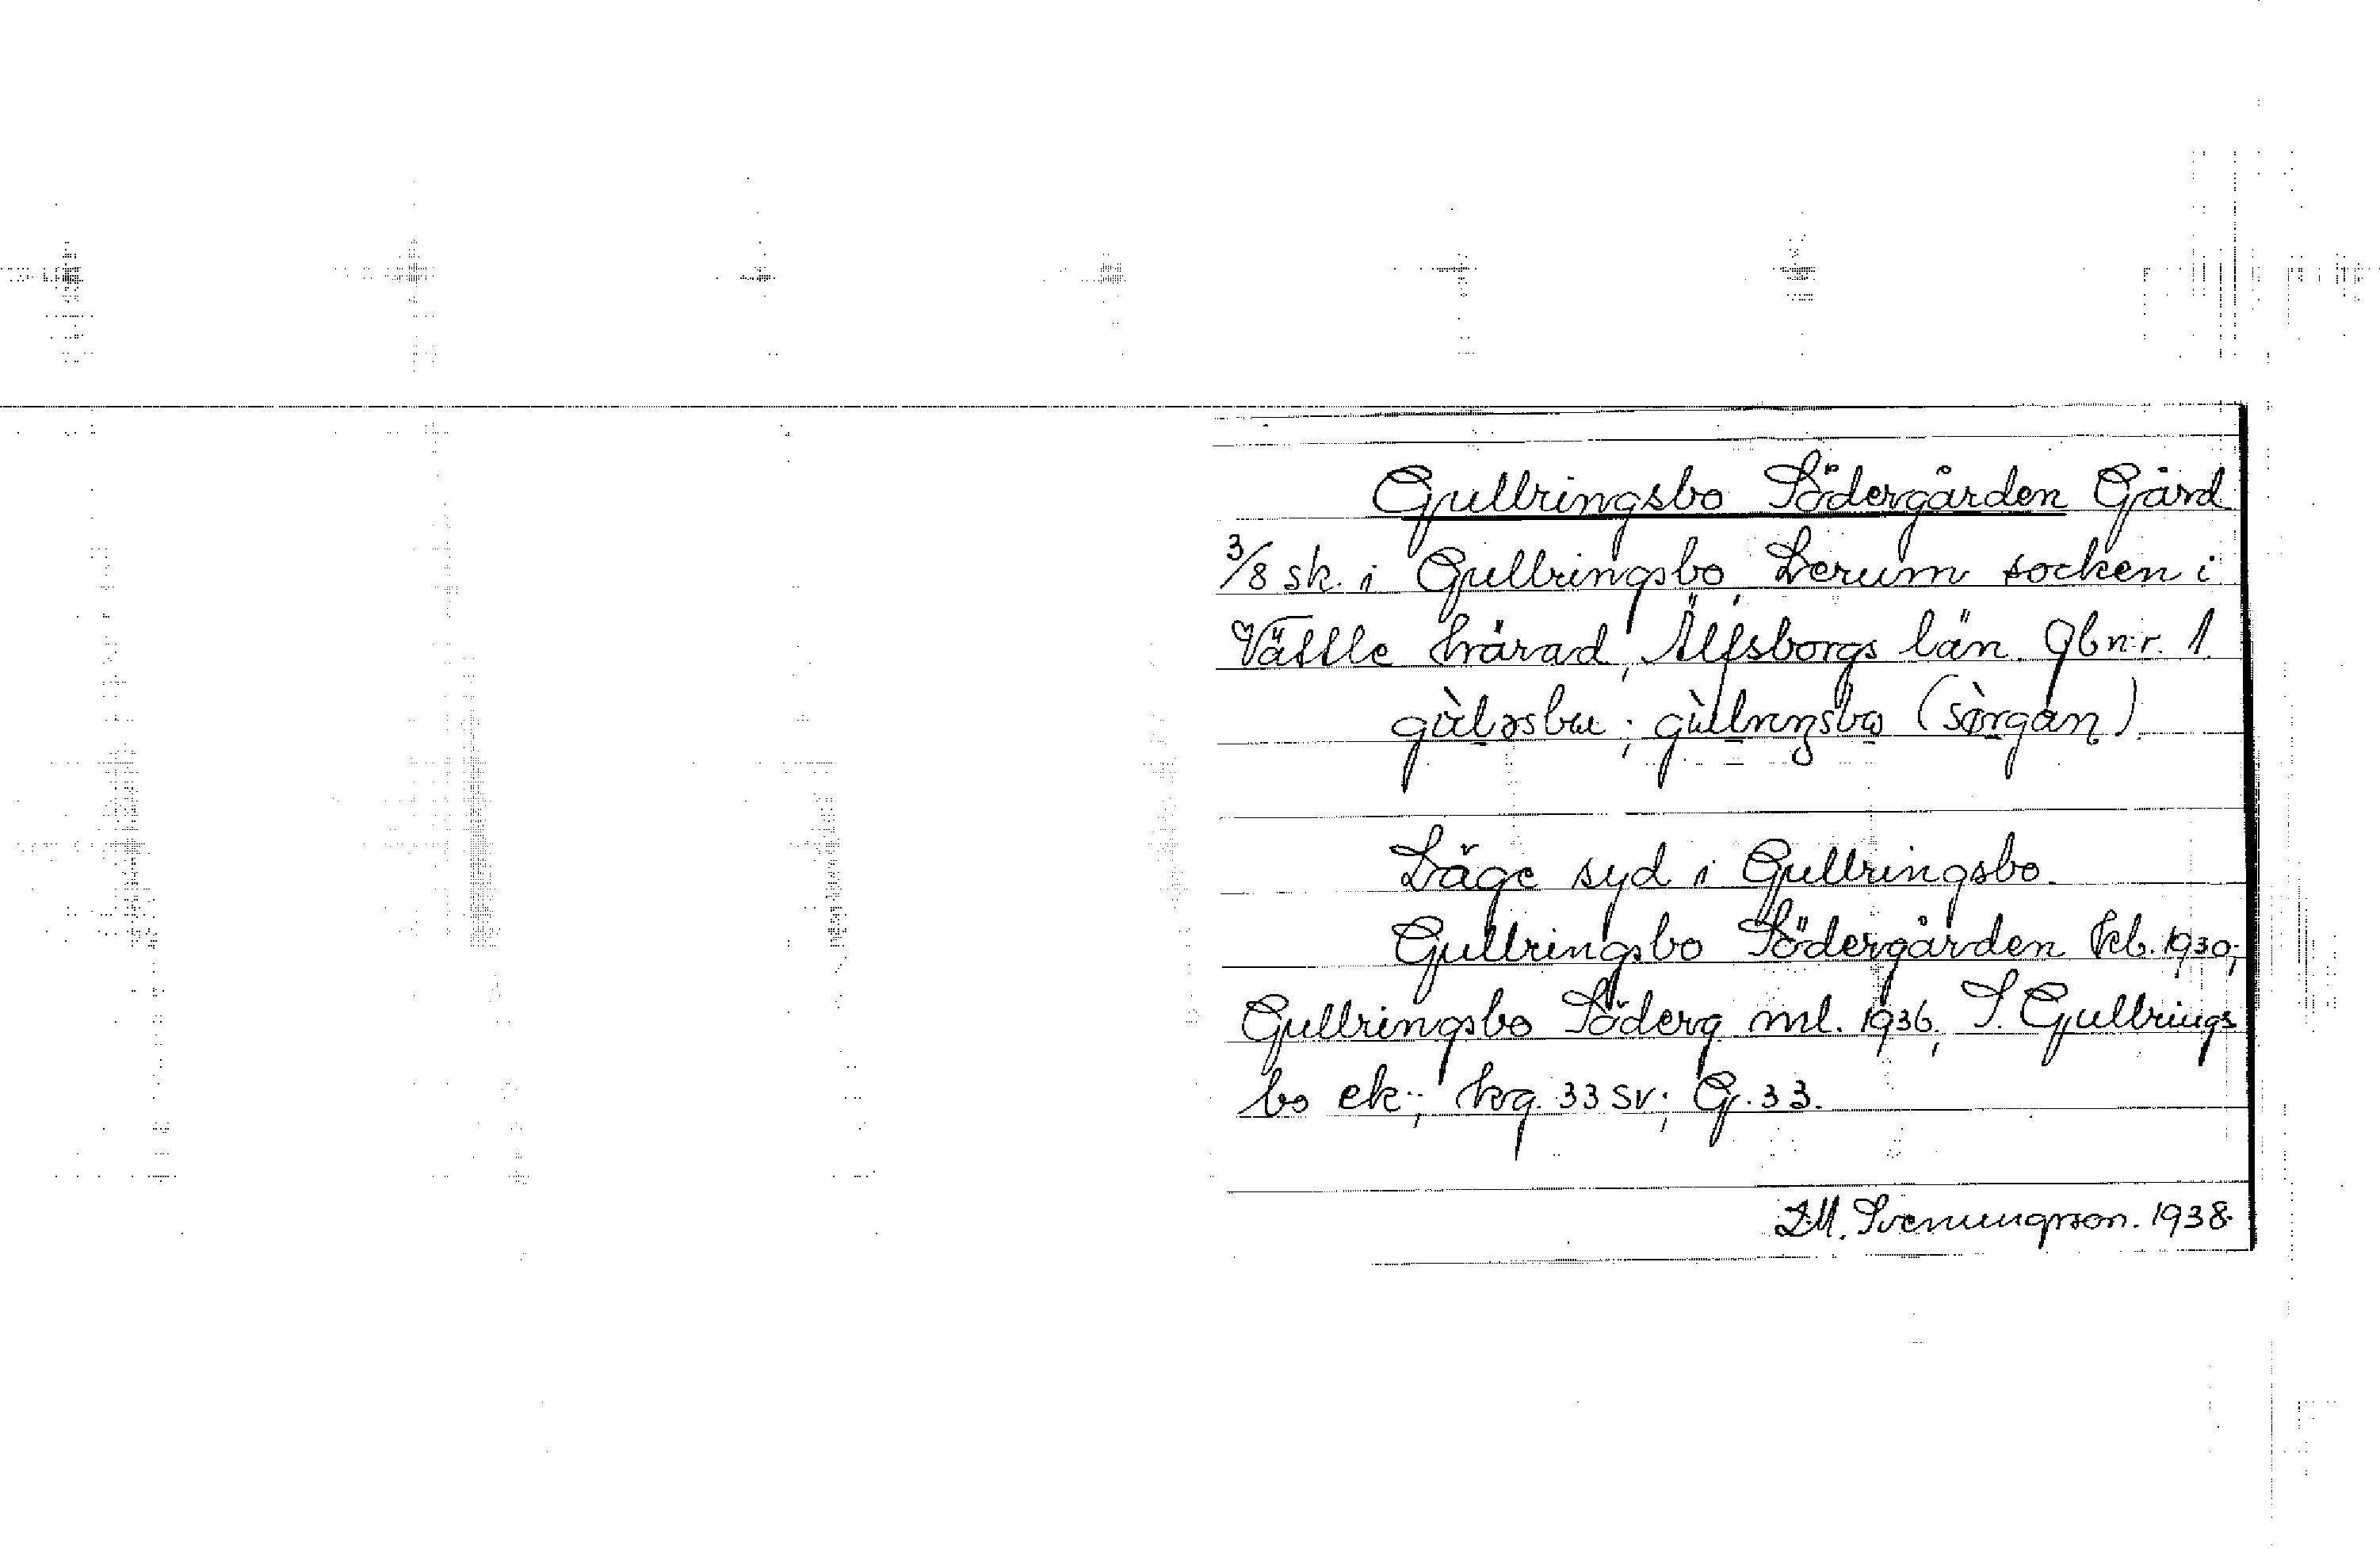 Gullringsbo Södergården Gård
3/8 sk. i Gullringsbo, Lerum socken i
Vättle härad, Älfsborgs län. Gbnr. 1.
gùləsbu; gùllreŋsbo (sòrgan).
Läge syd i Gullringsbo.
Gullringsbo Södergården kb. 1930;
Gullringsbo Söderg ml. 1936, S. Gullrings
bo ek.; hrg. 33 sv; G. 33.
I.M. Svenungsson. 1938.